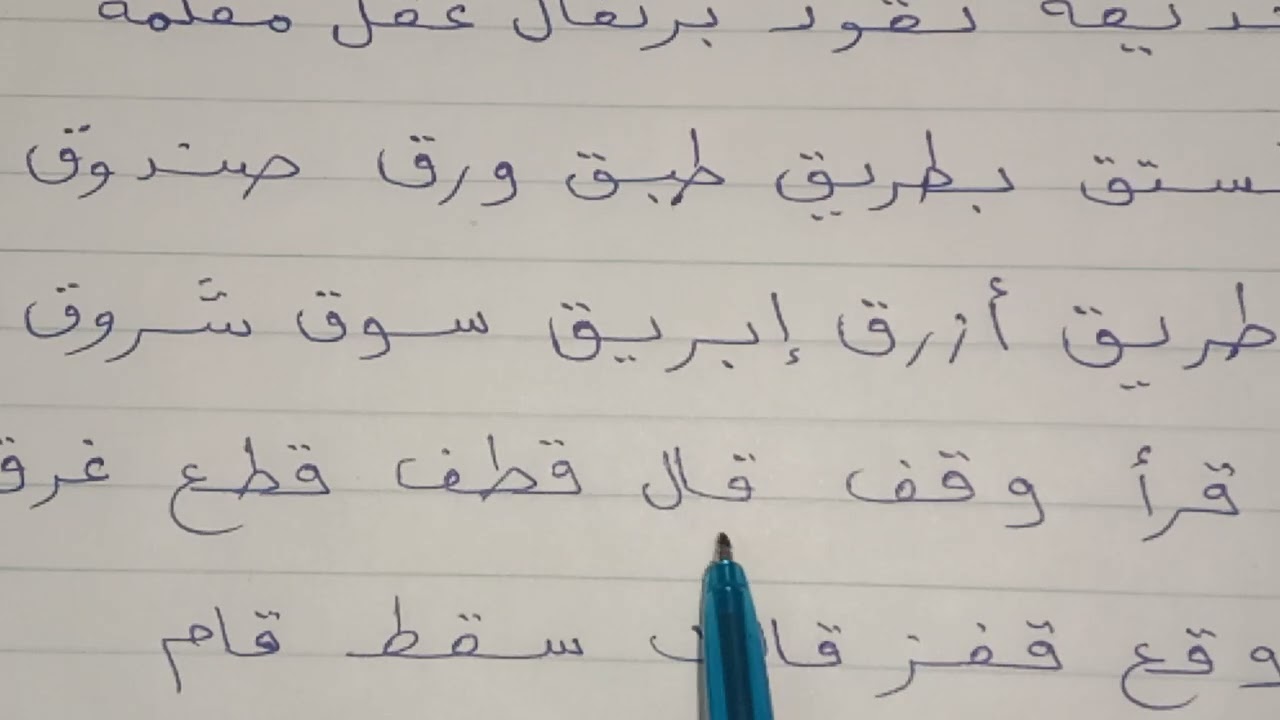 نقود برتقال عقل مقلمة
بطريق طبق ورق صندوق
طريق أزرق إبريق سوق شروق
قرأ وقف قال قطف قطع غرق
وقع قفز سقط قام